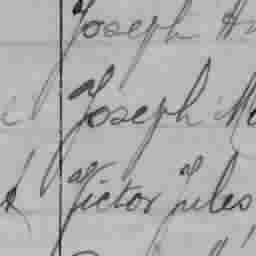 Joseph
Joseph
Victor Jules